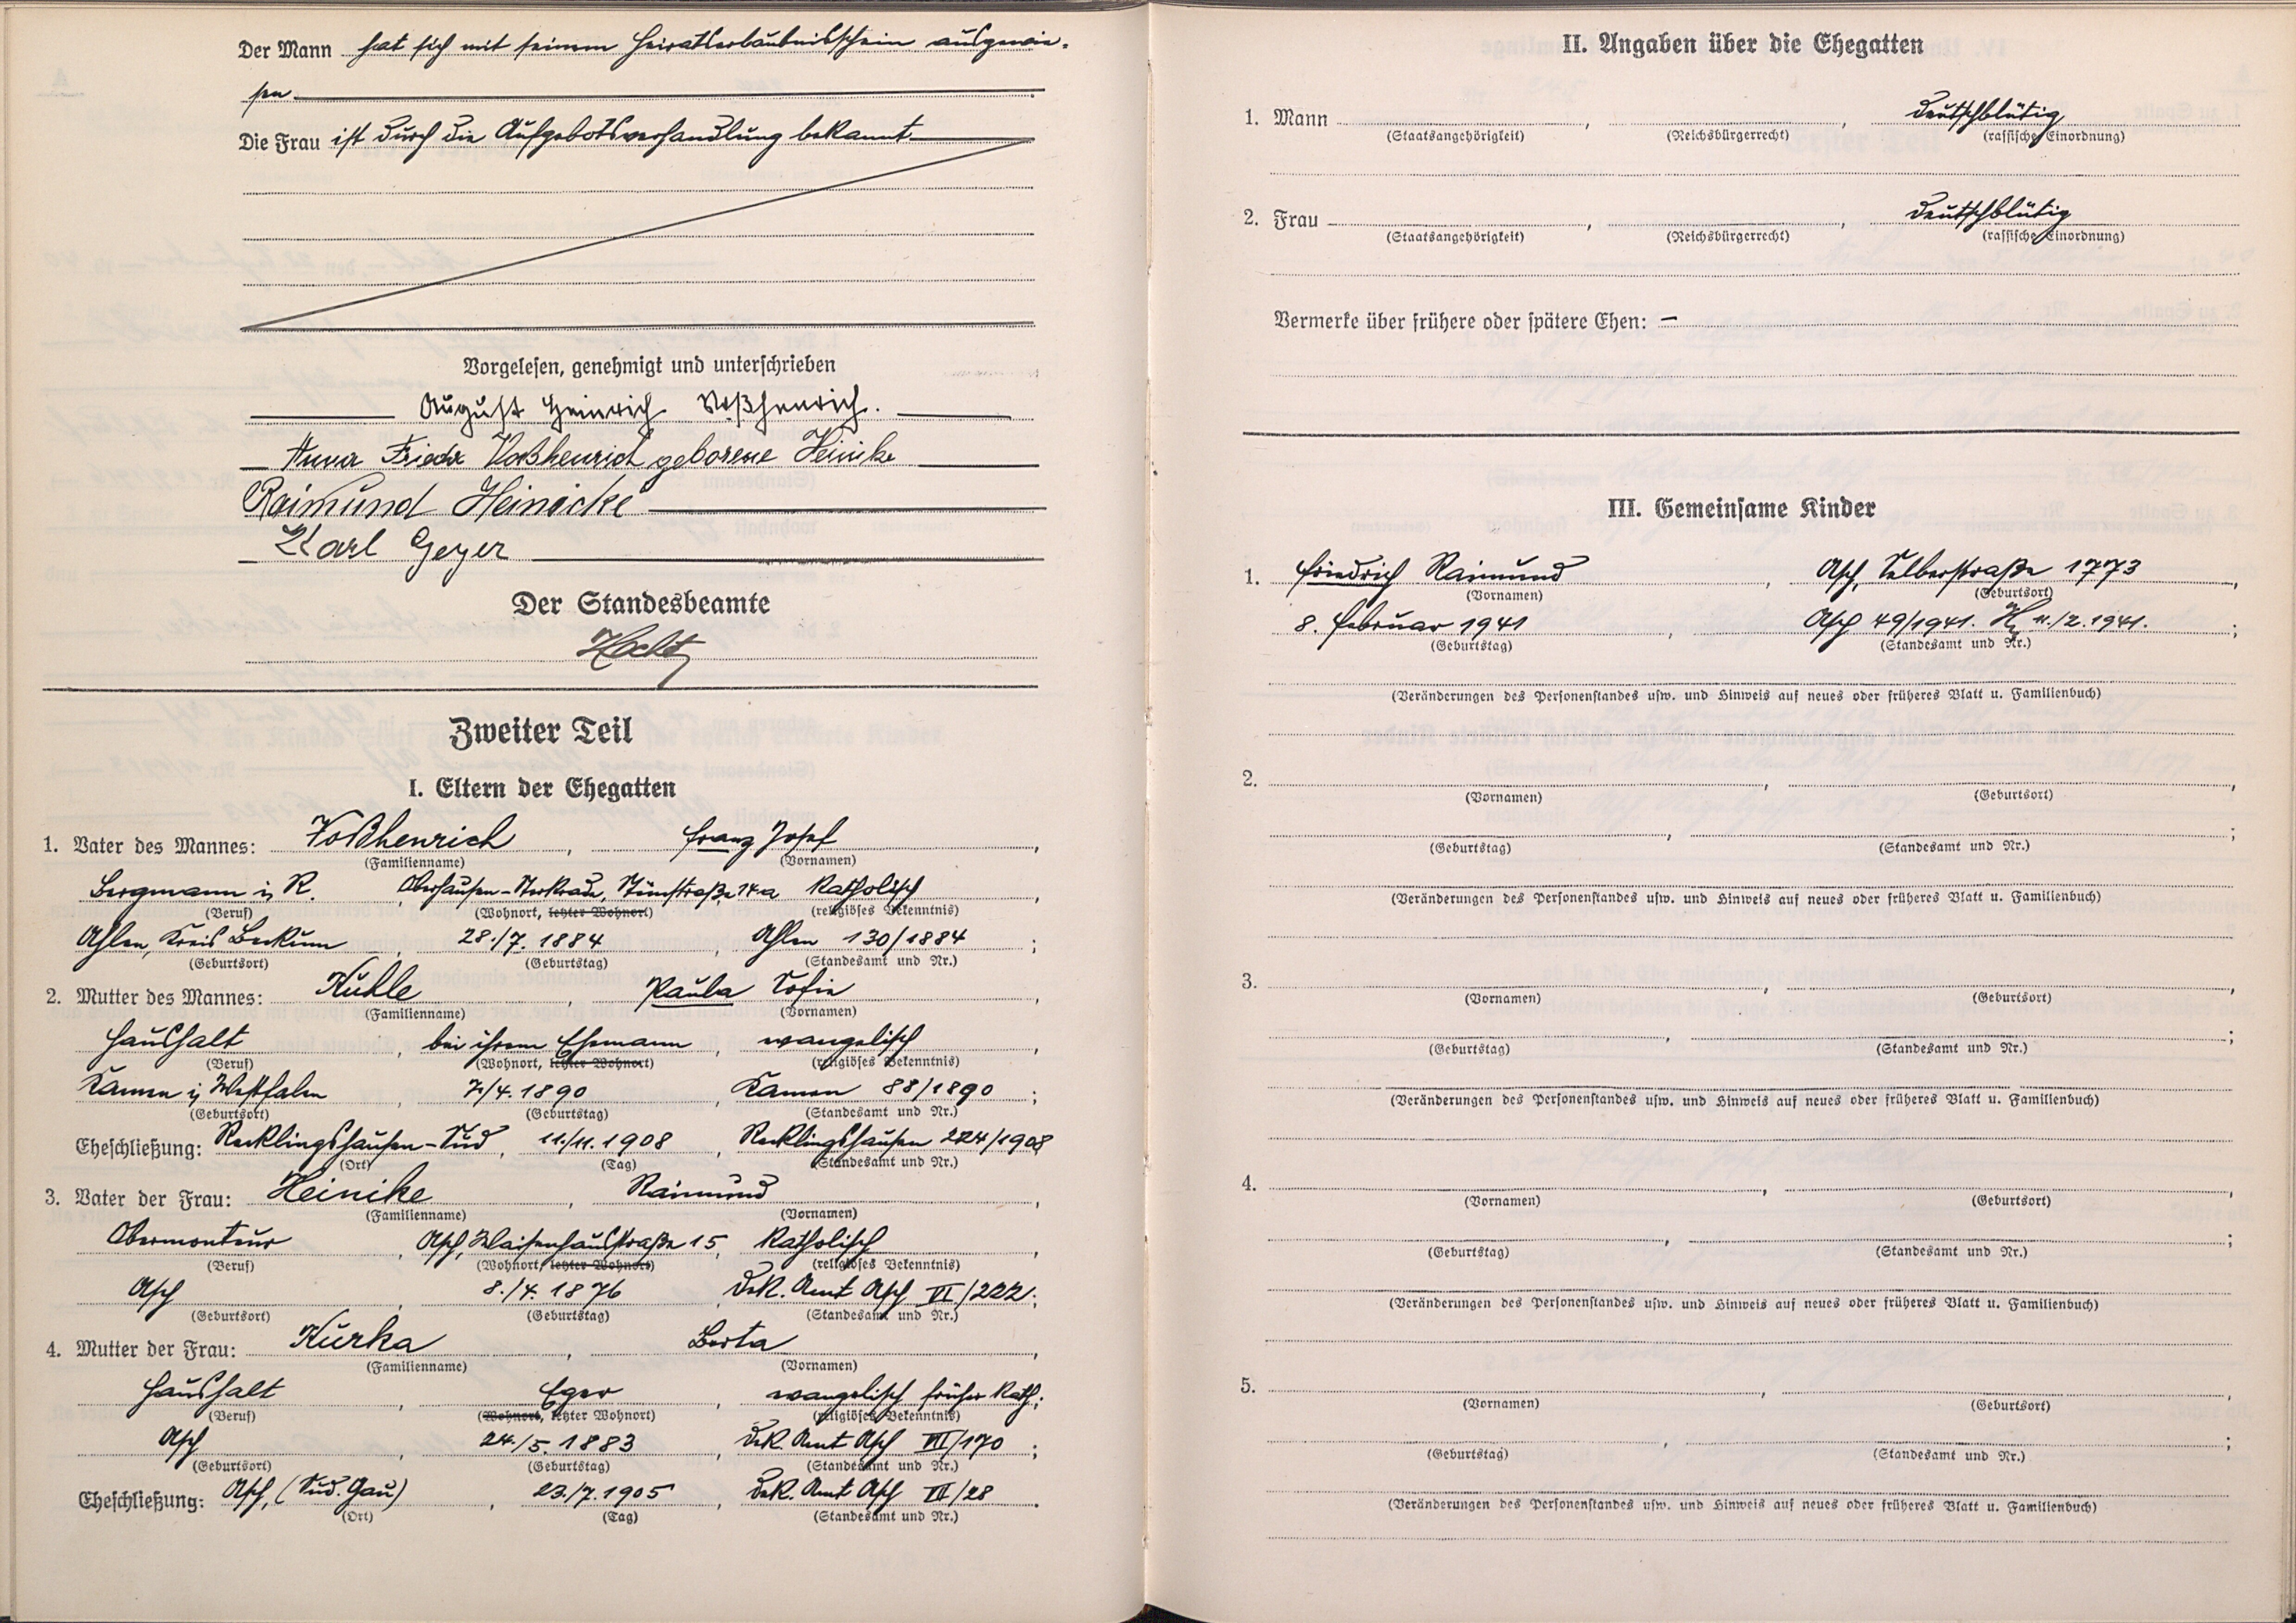 Der Mann hat sich mit seinem Heiratserlaubnisschein ausgewie-
sen
Die Frau ist durch die Aufgebotsverhandlung bekannt
Vorgelesen, genehmigt und unterschrieben
August Heinrich Voßhenrich.
Anna Frieda Voßhenrich geborene Heinike
Raimund Heinicke
Karl Geyer
Der Standesbeamte
Zweiter Teil
I. Eltern der Ehegatten
1. Vater des Mannes: Voßhenrich, Franz Josef,
(Familienname) (Vornamen)
Bergmann i. R. Oberhausen-Sterkrade, 14a katholisch,
(Beruf) (Wohnort, letzter Wohnort) (religiöses Bekenntnis)
Ahlen, Kreis Beckum, 28./7. 1884, Ahlen 130/1884;
(Geburtsort) (Geburtstag) (Standesamt und Nr.)
2. Mutter des Mannes: Kuhle, Paula Sofie,
(Familienname) (Vornamen)
Haushalt, bei ihrem Ehemann, evangelisch,
(Beruf) (Wohnort, letzter Wohnort) (religiöses Bekenntnis)
Kamen i. Westfalen, 7./4. 1890, Kamen 88/1890;
(Geburtsort) (Geburtstag) (Standesamt und Nr.)
Eheschließung: Recklingshausen-Süd, 11./11. 1908, Recklingshausen 224/1908
(Ort) (Tag) (Standesamt und Nr.)
3. Vater der Frau: Heinike, Raimund,
(Familienname) (Vornamen)
Obermonteur, Asch, Waisenhausstraße 15, katholisch,
(Beruf) (Wohnort, letzter Wohnort) (religiöses Bekenntnis)
Asch, 8./4. 1876, Dek. Amt Asch VI/222;
(Geburtsort) (Geburtstag) (Standesamt und Nr.)
4. Mutter der Frau: Kurka, Berta,
(Familienname) (Vornamen)
Haushalt, Eger, evangelisch früher kath.;
(Beruf) (Wohnort, letzter Wohnort) (religiöses Bekenntnis)
Asch, 24./5. 1883, Dek. Amt Asch VII/170;
(Geburtsort) (Geburtstag) (Standesamt und Nr.)
Eheschließung: Asch, (Sud. Gau), 23./7. 1905, Dek. Amt Asch VI/28.
(Ort) (Tag) (Standesamt und Nr.)
II. Angaben über die Ehegatten
1. Mann , , deutschblütig
(Staatsangehörigkeit) (Reichsbürgerrecht) (rassische Einordnung)
2. Frau , , deutschblütig
(Staatsangehörigkeit) (Reichsbürgerrecht) (rassische Einordnung)
Vermerke über frühere oder spätere Ehen: –
III. Gemeinsame Kinder
1. Friedrich Raimund, Asch, Selberstraße 1773,
(Vornamen) (Geburtsort)
8. Februar 1941, Asch 49/1941. 11./2. 1941.;
(Geburtstag) (Standesamt und Nr.)
(Veränderungen des Personenstandes usw. und Hinweis auf neues oder früheres Blatt u. Familienbuch)
2. , ,
(Vornamen) (Geburtsort)
, ;
(Geburtstag) (Standesamt und Nr.)
(Veränderungen des Personenstandes usw. und Hinweis auf neues oder früheres Blatt u. Familienbuch)
3. , ,
(Vornamen) (Geburtsort)
, ;
(Geburtstag) (Standesamt und Nr.)
(Veränderungen des Personenstandes usw. und Hinweis auf neues oder früheres Blatt u. Familienbuch)
4. , ,
(Vornamen) (Geburtsort)
, ;
(Geburtstag) (Standesamt und Nr.)
(Veränderungen des Personenstandes usw. und Hinweis auf neues oder früheres Blatt u. Familienbuch)
5. , ,
(Vornamen) (Geburtsort)
, ;
(Geburtstag) (Standesamt und Nr.)
(Veränderungen des Personenstandes usw. und Hinweis auf neues oder früheres Blatt u. Familienbuch)